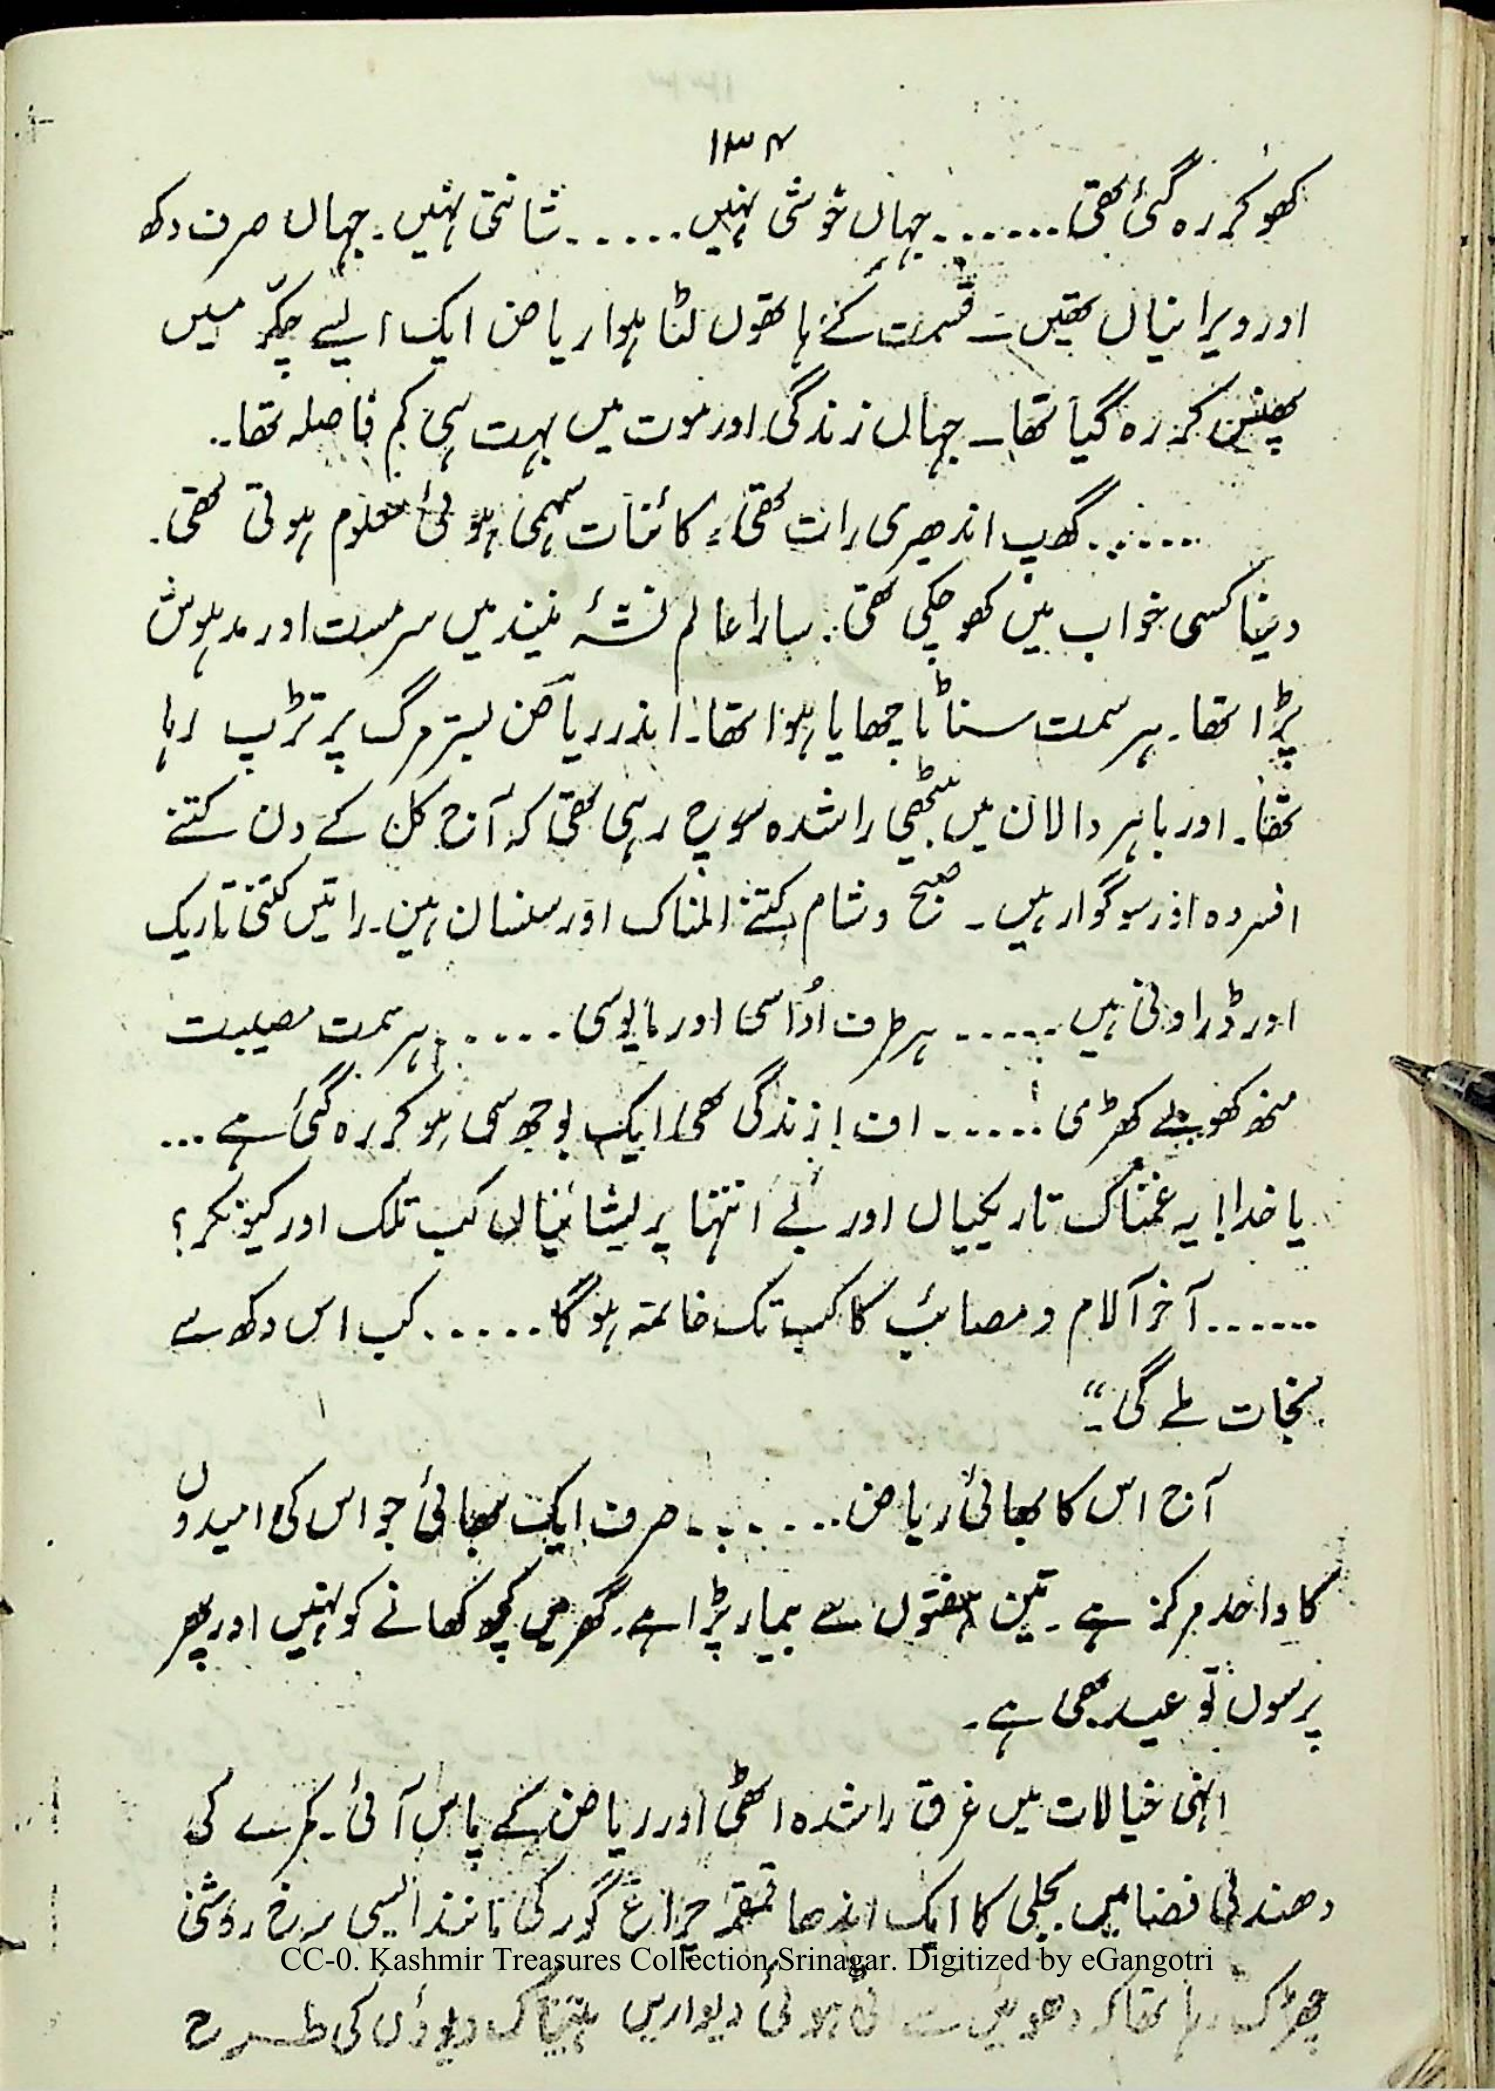 ۱۳۴
کھو کر رہ گئی تھی.......جہاں خوشی نہیں......شانتی نہیں۔جہاں صرف دکھ
اور ویرانیاں تھیں۔قسمت کے ہاتھوں لٹا ہوا ریاض ایک ایسے چکّر میں
پھنس کر رہ گیا تھا۔جہاں زندگی اور موت میں بہت ہی کم فاصلہ تھا۔
.......گھپ اندھیری رات تھی، کائنات سہمی ہوئی معلوم ہوتی تھی۔
دنیا کسی خواب میں کھو چکی تھی۔سارا عالم نشۂ نیند میں سرمست اور مدہوش
پڑا تھا۔ہر سمت سناٹا چھایا ہوا تھا۔اندر ریاض بسترمرگ پر تڑپ رہا
تھا۔اور باہر دالان میں بیٹھی راشدہ سوچ رہی تھی کہ آج کل کے دن کتنے
افسردہ اور سوگوار ہیں۔صبح و شام کتنے المناک اور سنسان ہیں۔راتیں کتنی تاریک
اور ڈراونی ہیں......ہر طرف اُداسی اور مایوسی......ہر سمت مصیبت
منھ کھولے کھڑی......اف! زندگی بھی ایک بوجھ سی ہو کر رہ گئی ہے...
یا خدا! یہ غمناک تاریکیاں اور بے انتہا پریشانیاں کب تلک اور کیونکر؟
.......آخر آلام و مصائب کا کب تک خاتمہ ہوگا......کب اس دکھ سے
نجات ملے گی۔“
آج اس کا بھائی ریاض.......صرف ایک بھائی جو اس کی امیدوں
کا واحد مرکز ہے۔تین ہفتوں سے بیمار پڑا ہے۔گھر میں کچھ کھانے کو نہیں اور پھر
پرسوں تو عید بھی ہے۔
انہی خیالات میں غرق راشدہ اٹھی اور ریاض کے پاس آئی۔کمرے کی
دھندلی فضا میں بجلی کا ایک اندھا قمقمہ چراغ گور کی مانند ایسی سرخ روشنی
CC-0. Kashmir Treasures Collection Srinagar. Digitized by eGangotri
چھڑک رہا تھا کہ دھوئیں سے اٹی ہوئی دیواریں ہیبتناک دیوؤں کی طرح